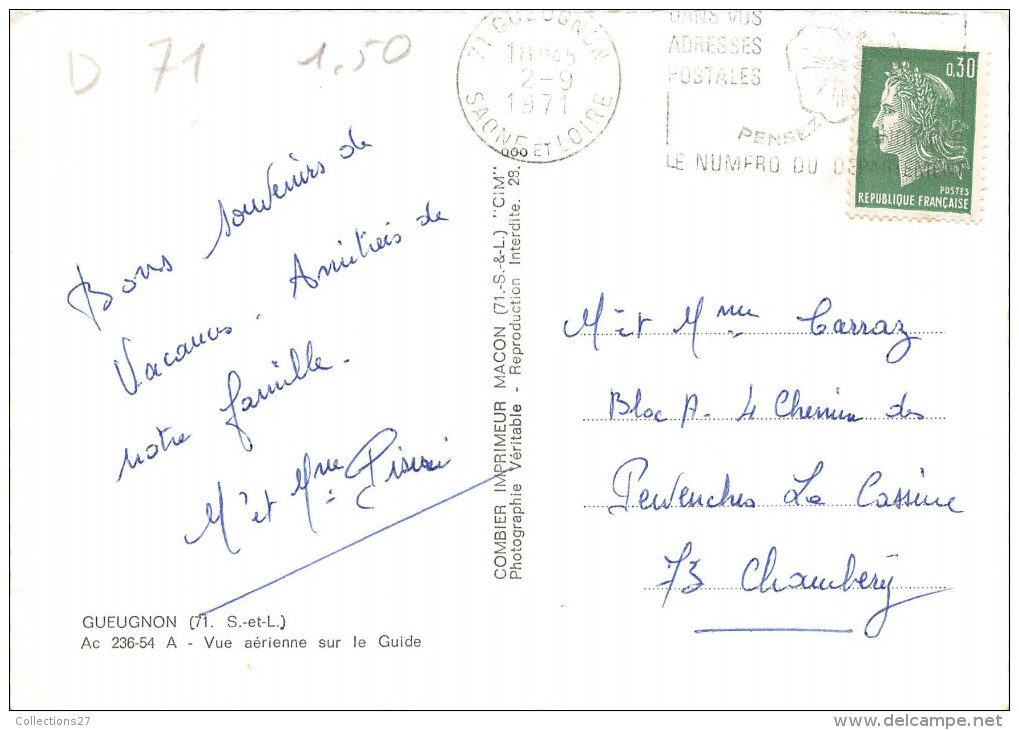 D 71 1.50
71 GUEUGNON
18H45
2-9
1971
SAONE ET LOIRE
DANS VOS
ADRESSES
POSTALES
PENSEZ
LE NUMÉRO DU DÉPARTEMENT
0,30
POSTES
REPUBLIQUE FRANÇAISE
Bons souvenirs de
Vacances. Amitiés de
notre famille.
Mr et Mme
COMBIER IMPRIMEUR MACON (71.-S.-&-L.) "CIM"
Photographie Véritable - Reproduction Interdite. 28.
Mr et Mme Carraz
Bloc A. 4 Chemin des
Pervenches La Cassine
73 Chambéry
GUEUGNON (71. S.-et-L.)
Ac 236-54 A - Vue aérienne sur le Guide
Collections27
www.delcampe.net